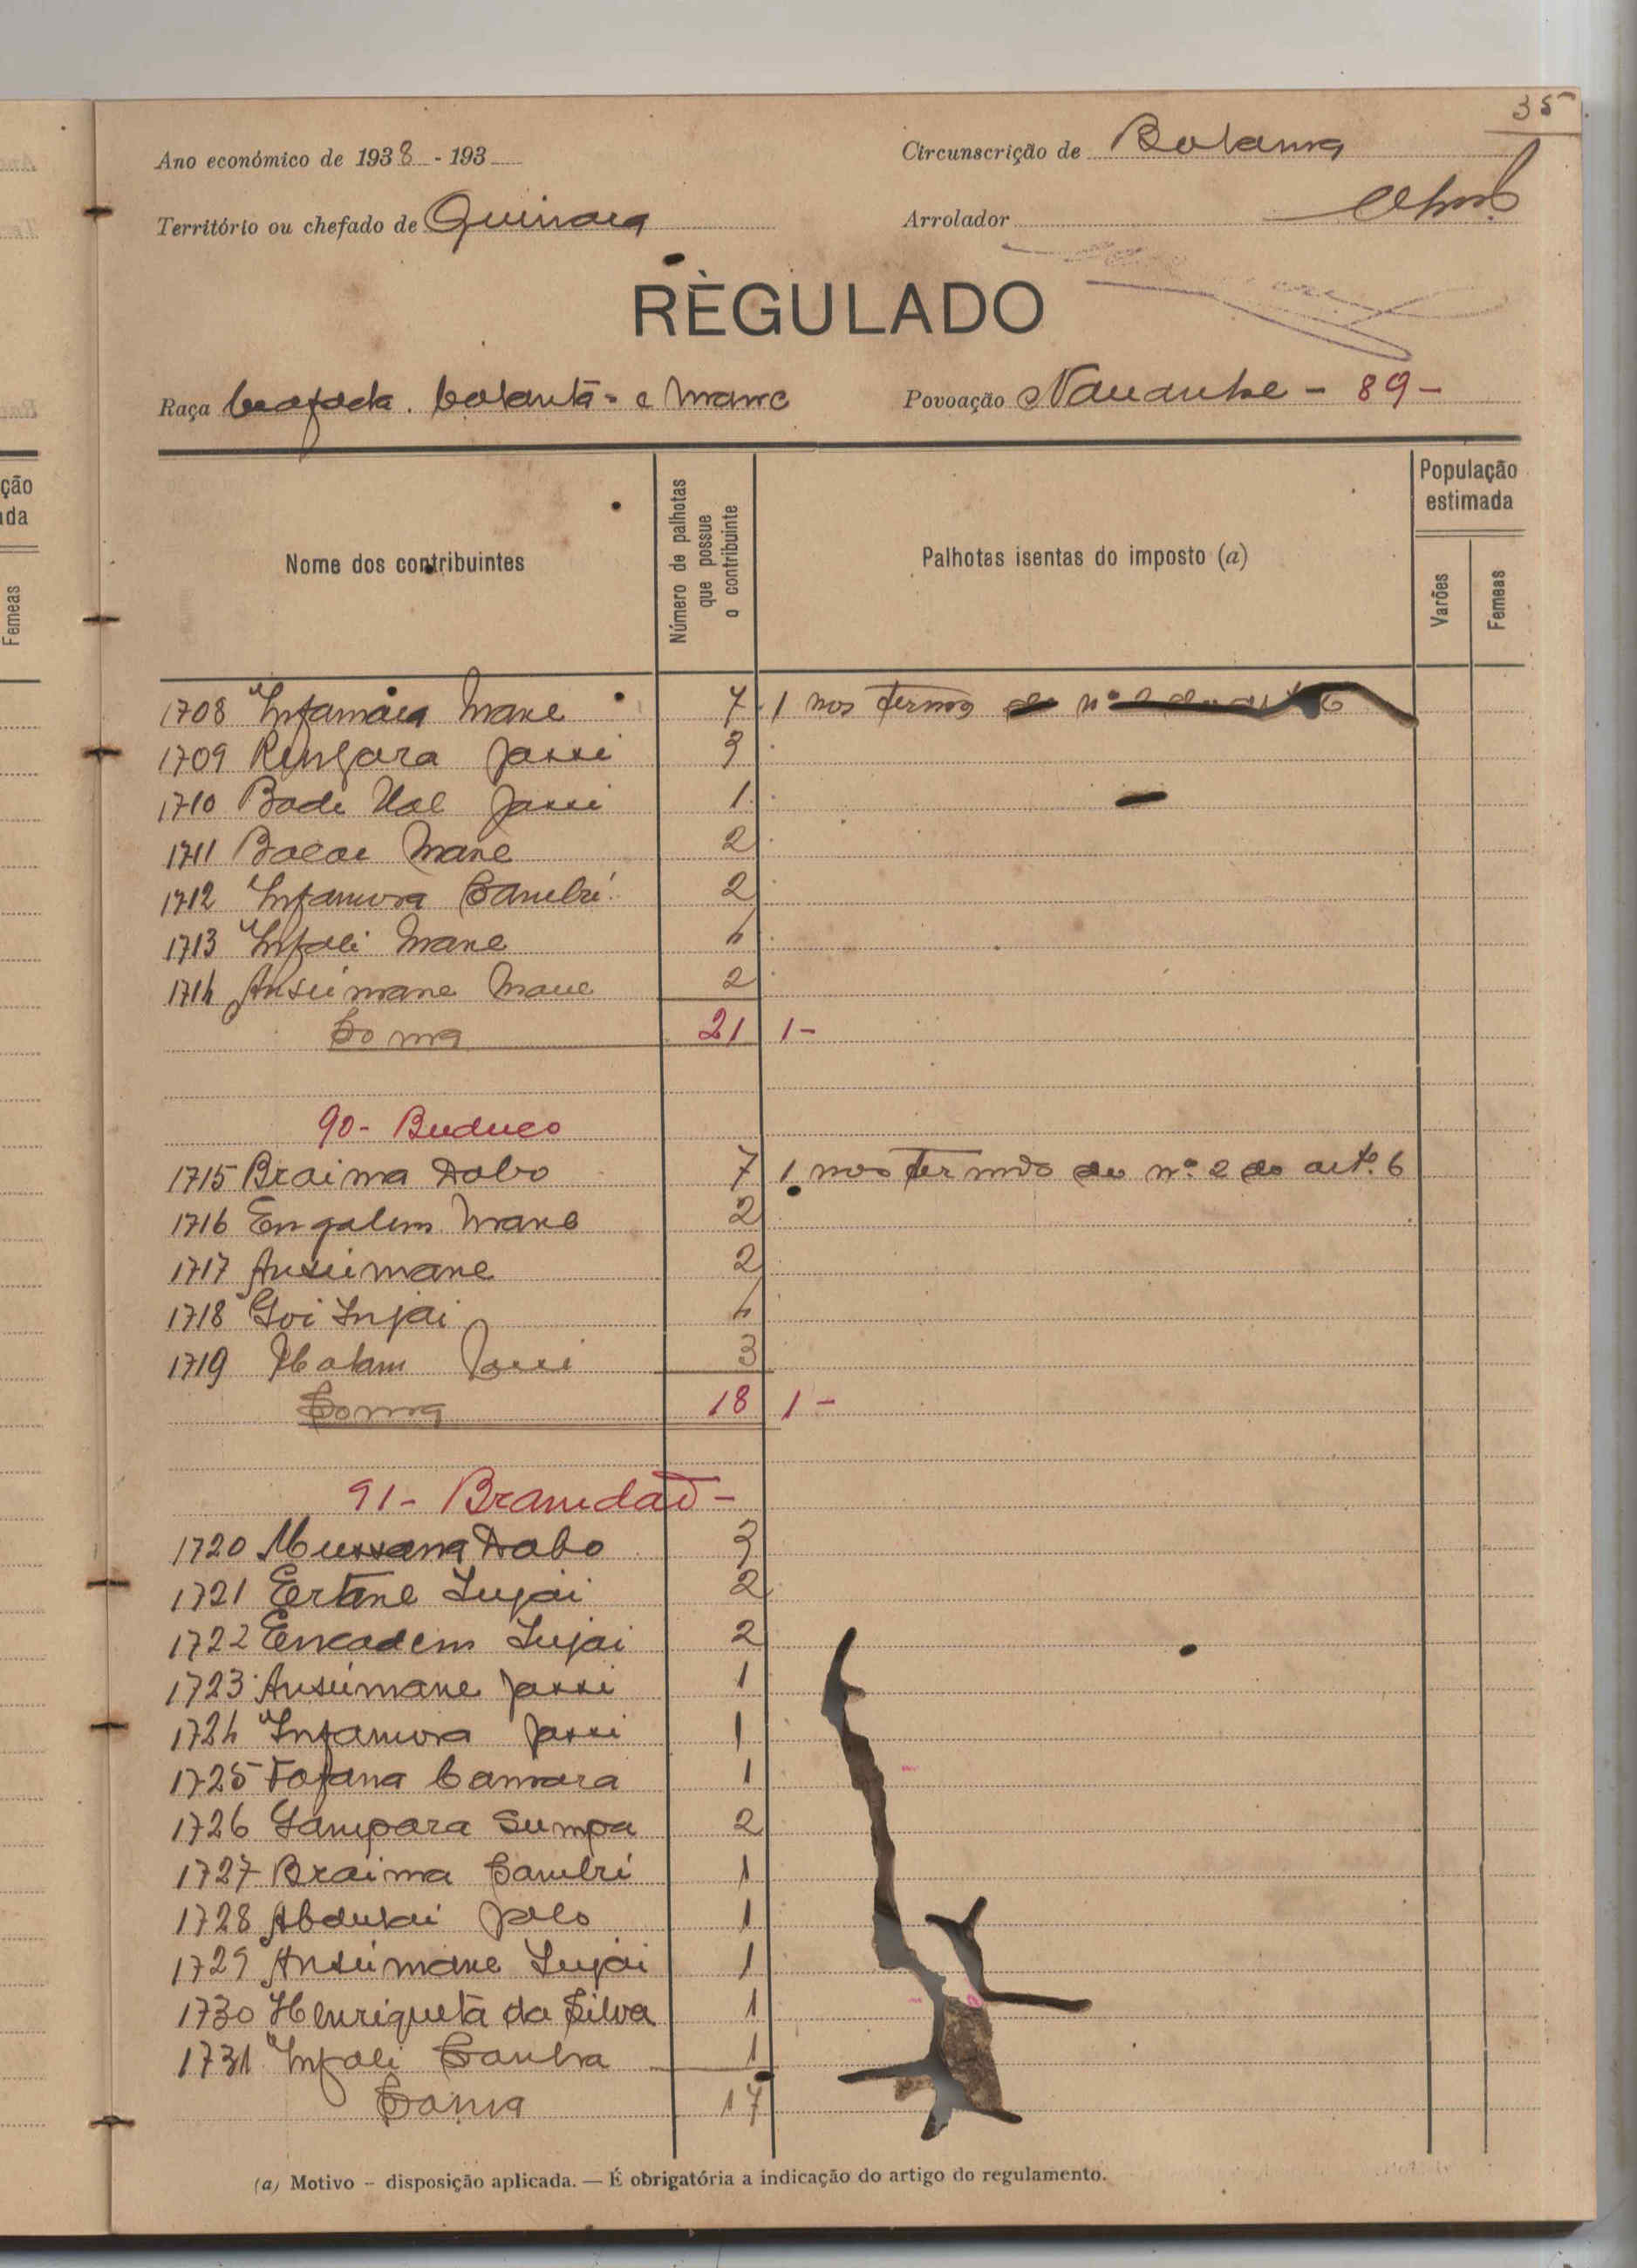 35
Ano económico de 1938 - 193
Circunscrição de Bolama
Território ou chefado de Quinara
Arrolador
REGULADO
Raça beafada. balanta - e mane
Povoação - 89 -
Nome dos contribuintes
Número de palhotas que possue o contribuinte
Palhotas isentas do imposto (a)
População estimada
Varões
Femeas
1708 Infamára Mane 7 1 nos termos do nº 2 do artº 6
1709 Jassi 3
1710 Bode Ual Jassi 1
1711 Bacar Mane 2
1712 Infamora Sambú 2
1713 Infali Mane 4
1714 Ansúmane Mane 2
Soma 21 1 -
90 - Buduco
1715 Braima Dabo 7 1 nos termos do nº 2 do artº 6
1716 Engalem Mane 2
1717 Ansúmane 2
1718 Goi Injai 4
1719 Malam Jassi 3
Soma 18 1 -
91 - Bramdão -
1720 Mussana Dabo 3
1721 Injai 2
1722 Encadem Injai 2
1723 Ansúmane Jassi 1
1724 Infamora Jassi 1
1725 Fofana Camara 1
1726 Gampara Sumpa 2
1727 Braima Sambú 1
1728 Abdulai Jalo 1
1729 Ansúmane Injai 1
1730 Henriqueta da Silva 1
1731 Infali Sanha 1
Soma 17
(a) Motivo – disposição aplicada. — É obrigatória a indicação do artigo do regulamento.
ção
da
Femeas